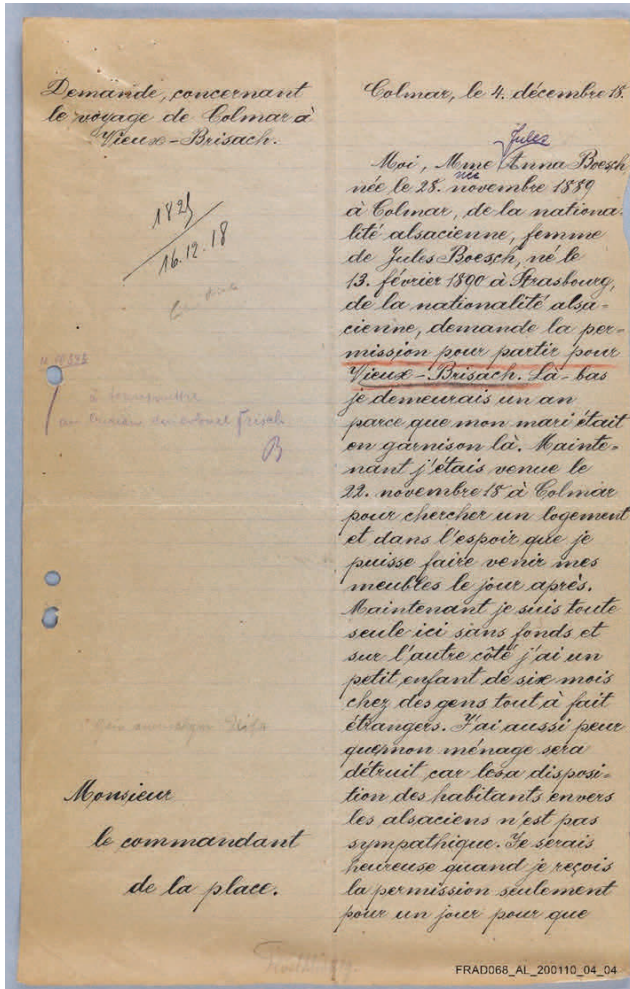 Demande, concernant
le voyage de Colmar à
Vieux-Brisach.
1825
16.12.18
à transmettre
au
B
Monsieur
le commandant
de la place.
Colmar, le 4. décembre 18.
Jules
Moi, Mme Anna Boesch
née le 28. novembre 1889
à Colmar, de la nationa-
lité alsacienne, femme
de Jules Boesch, né le
13. février 1890 à Strasbourg,
de la nationalité alsa-
cienne, demande la per-
mission pour partir pour
Vieux-Brisach. Là-bas
je demeurais un an
parce que mon mari était
en garnison là. Mainte-
nant j'étais venue le
22. novembre 18 à Colmar
pour chercher un logement
et dans l'espoir que je
puisse faire venir mes
meubles le jour après.
Maintenant je suis toute
seule ici sans fonds et
sur l'autre côté j'ai un
petit enfant de six mois
chez des gens tout à fait
étrangers. J'ai aussi peur
que mon ménage sera
détruit car la disposi-
tion des habitants envers
les alsaciens n'est pas
sympathique. Je serais
heureuse quand je reçois
la permission seulement
pour un jour pour que
FRAD068_AL_200110_04_04